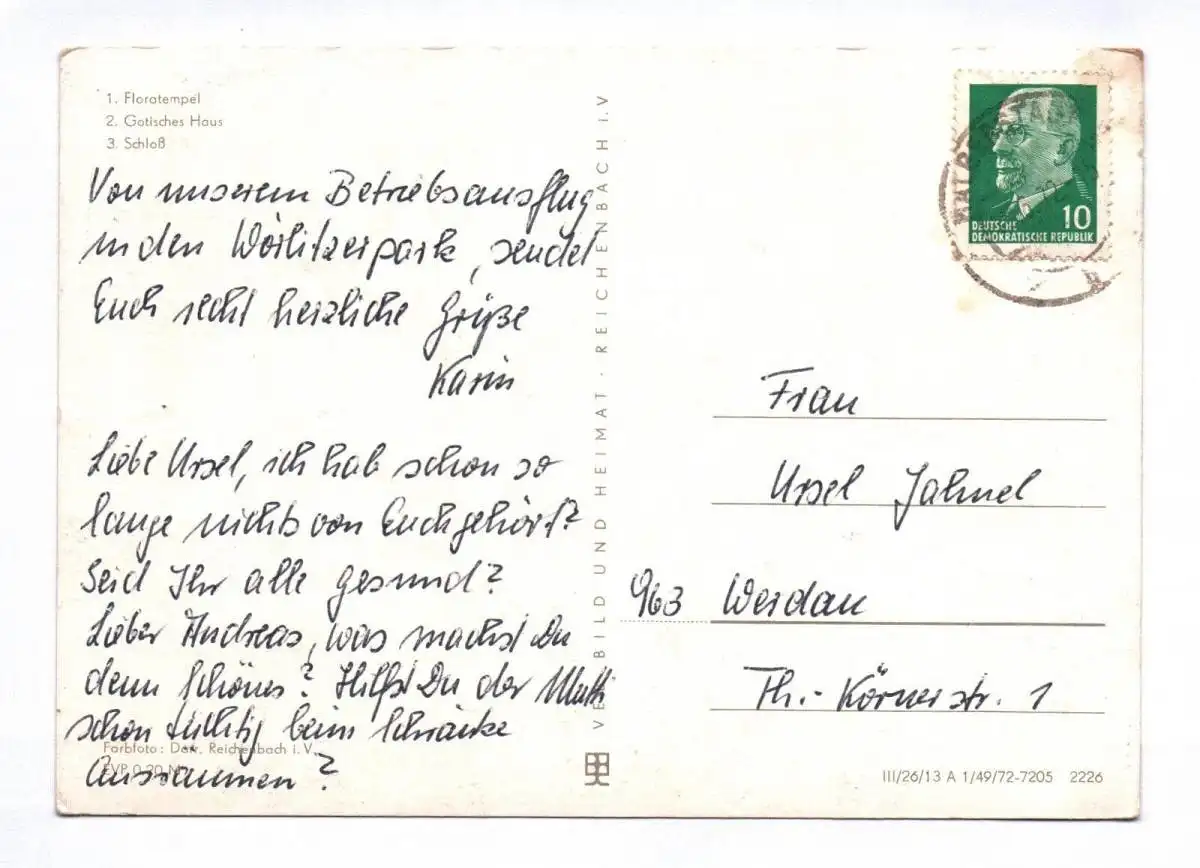 1. Floratempel
2. Gotisches Haus
3. Schloß
Von unserem Betriebsausflug
in den Wörlitzerpark, sendet
Euch recht herzliche Grüße
Karin
Liebe Ursel, ich hab schon so
lange nichts von Euch gehört?
Seid Ihr alle gesund?
Lieber Andreas, was machst Du
denn schönes? Hilfst Du der Mutti
schon tüchtig beim Schränke
Ausräumen?
Farbfoto: Darr, Reichenbach i. V.
EVP 0,20 M
VEB BILD UND HEIMAT · REICHENBACH i. V
10
DEUTSCHE
DEMOKRATISCHE REPUBLIK
Frau
Ursel Jahnel
963 Werdau
Th.-Körnerstr. 1
III/26/13 A 1/49/72-7205 2226